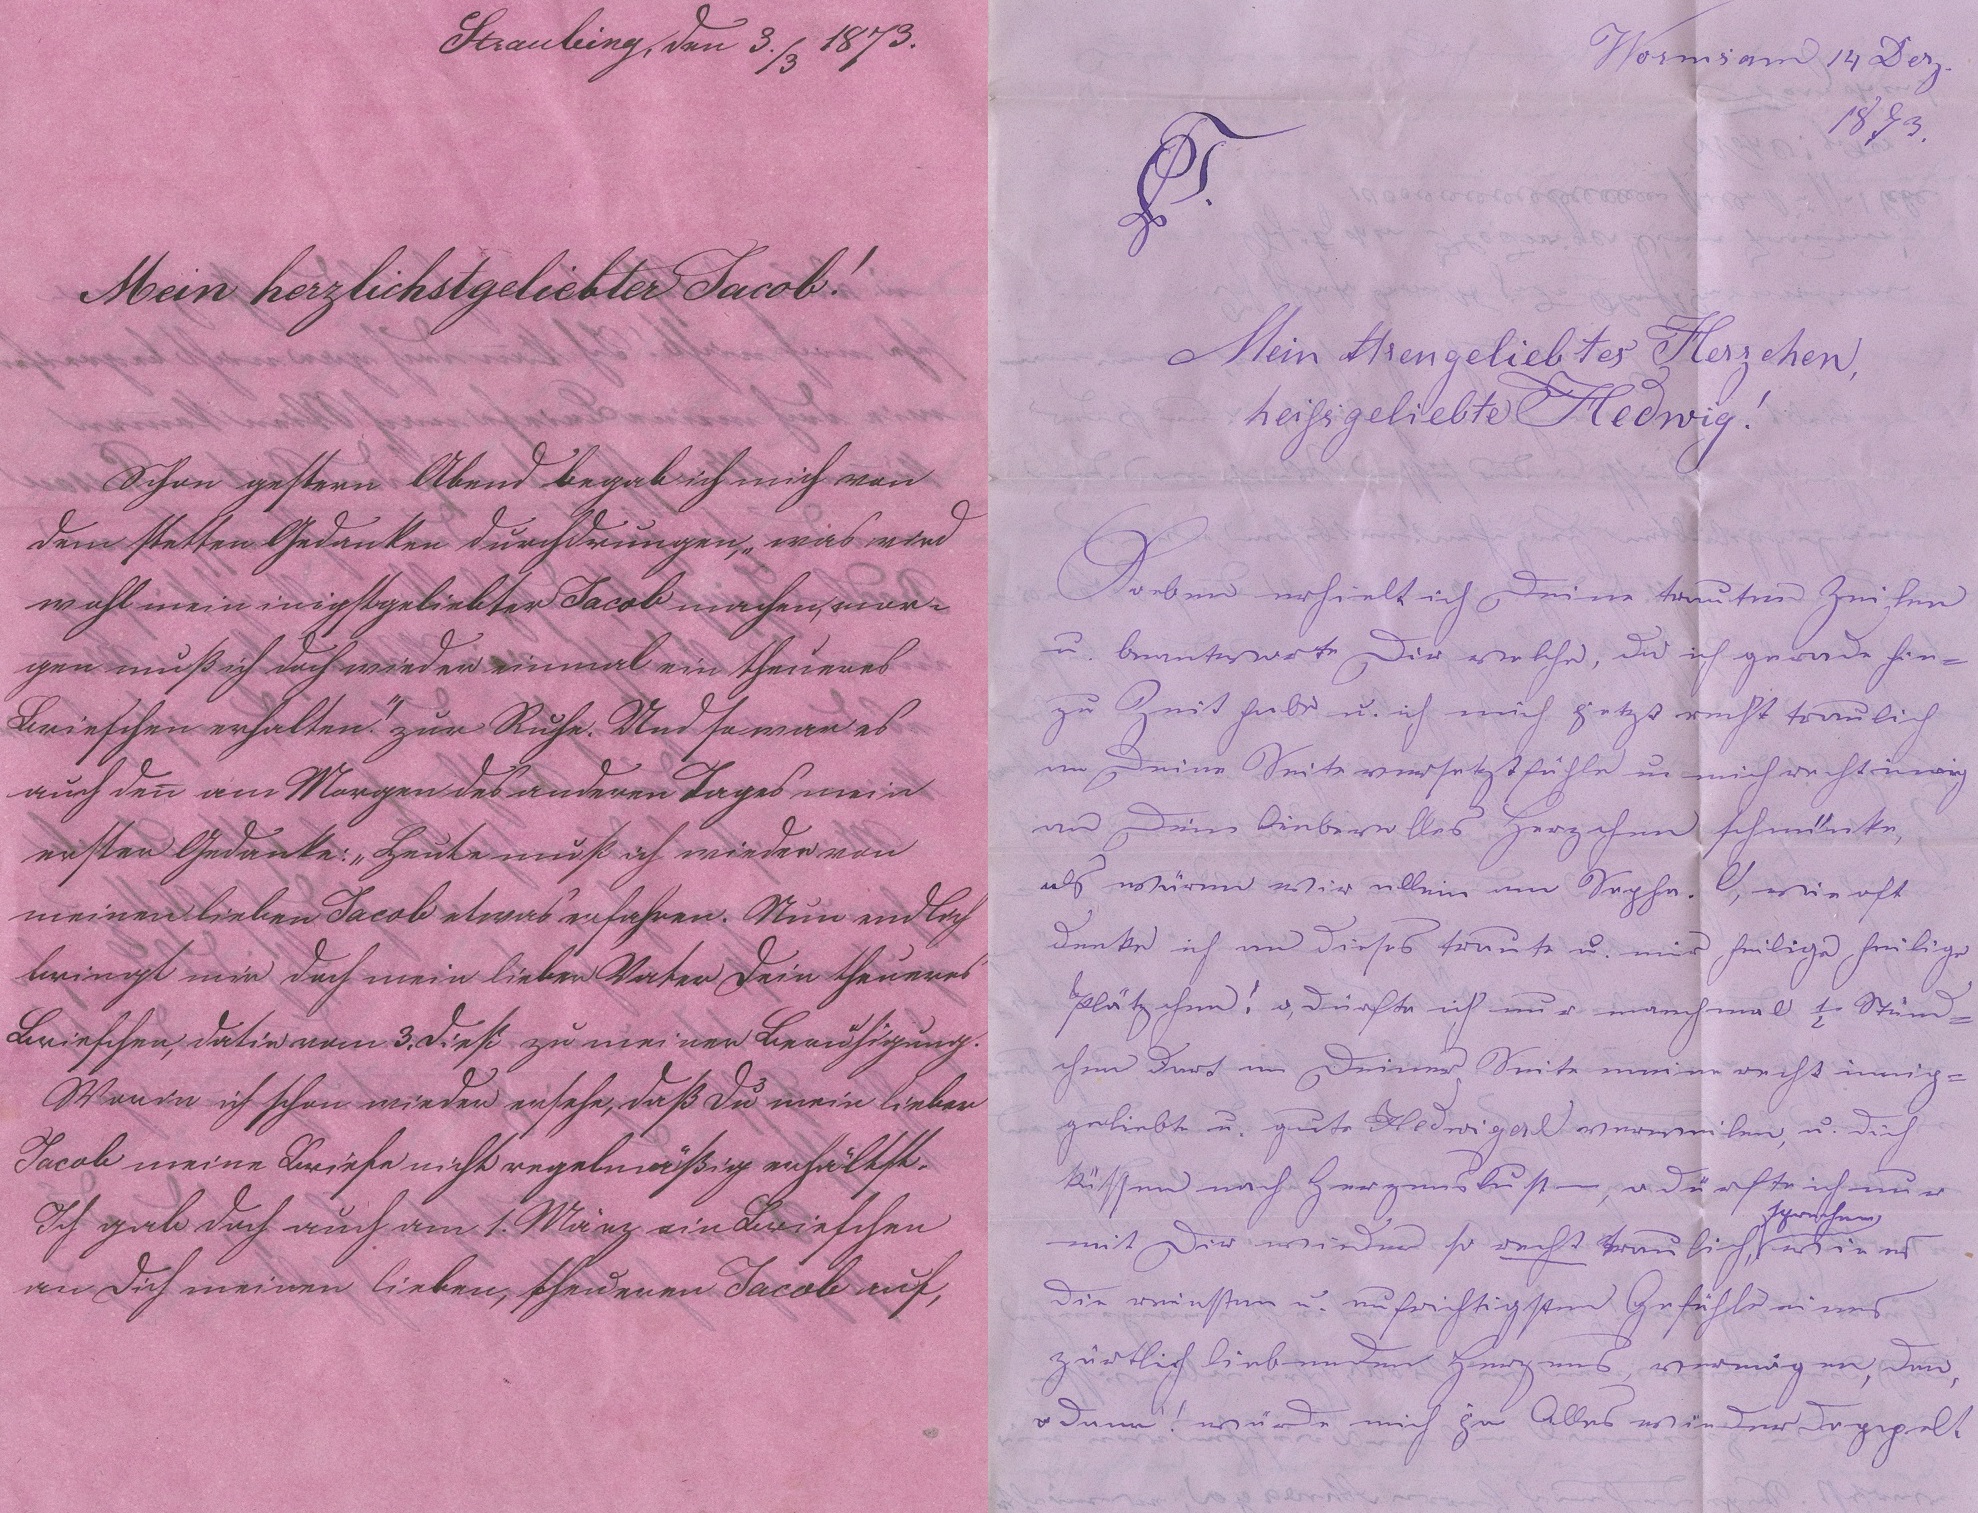 Straubing, den 3./3 1873.
Mein herzlichstgeliebter Jacob!
Schon gestern Abend begab ich mich von
dem stetten Gedanken durchdrungen, „was wird
wohl mein inigstgeliebter Jacob machen, mor-
gen muß ich doch wieder einmal ein theueres
Briefchen erhalten“ zur Ruhe. Und so war es
auch den̄ am Morgen des anderen Tages mein
erster Gedanke: „Heute muß ich wieder von
meinen lieben Jacob etwas erfahren. Nun endlich
bringt mir doch mein lieber Vater Dein theueres
Briefchen, datir vom 3. dieß zu meiner Beruhigung.
Worin ich schon wieder ersehe, daß Du mein lieber
Jacob meine Briefe nicht regelmäßig erhältst.
Ich gab doch auch am 1. März ein Briefchen
an Dich meinen lieben, theueren Jacob auf,
14 Dez.
1873.
Mein threngeliebtes Herzchen,
heißgeliebte Hedwig!
Soeben erhielt ich Deine trauten Zeilen
u. beantworte Dir welche, da ich gerade hie-
zu Zeit habe u. ich mich jetzt recht traulich
an Deine Seite versetzt fühle u. mich recht innig
an Dein liebevolles Herzchen schmücke,
als wären wir allein am Sopha. O, wie oft
denke ich an dieses traute u. mir heilige heilige
Plätzchen! o, dürfte ich nur manchmal ½ Stünd-
chen dort an Deiner Seite meine recht innig-
geliebte u. gute Hedwigerl verweilen, u. dich
küssen nach Herzenslust —, o dürfte ich nur
mit Dir wieder so recht traulich, sprechen wie es
die reinsten u. aufrichtigsten Gefühle eines
zärtlich liebenden Herzens, vermögen, dan,
o dann! würde mich ja Alles wieder doppelt